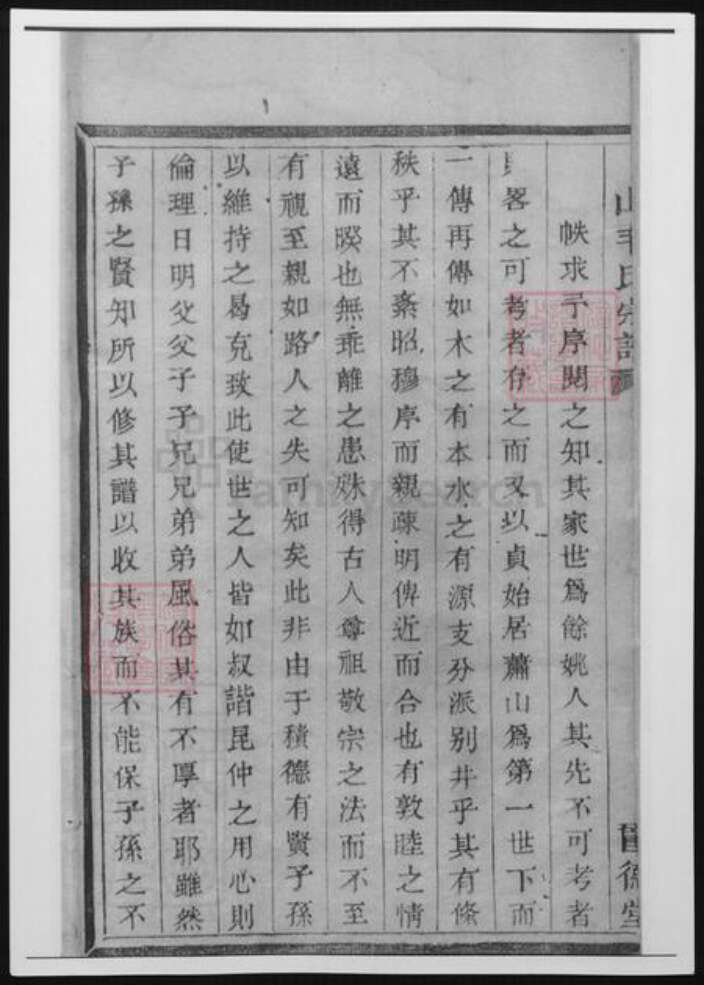 山毛氏宗譜
德堂
帙求予序閱之知其家世爲餘姚人其先不可考者
畧之可考者存之而又以貞始居蕭山爲第一世下而
一傳再傳如木之有本水之有源支分派别井乎其有條
秩乎其不紊昭穆序而親疎明俾近而合也有敦睦之情
遠而暌也無乖離之患殊得古人尊祖敬宗之法而不至
有視至親如路人之失可知矣此非由于積德有賢子孫
以維持之曷克致此使世之人皆如叔諧昆仲之用心則
倫理日明父父子子兄兄弟弟風俗其有不厚者耶雖然
子孫之賢知所以修其譜以收其族而不能保子孫之不
FamilySearch